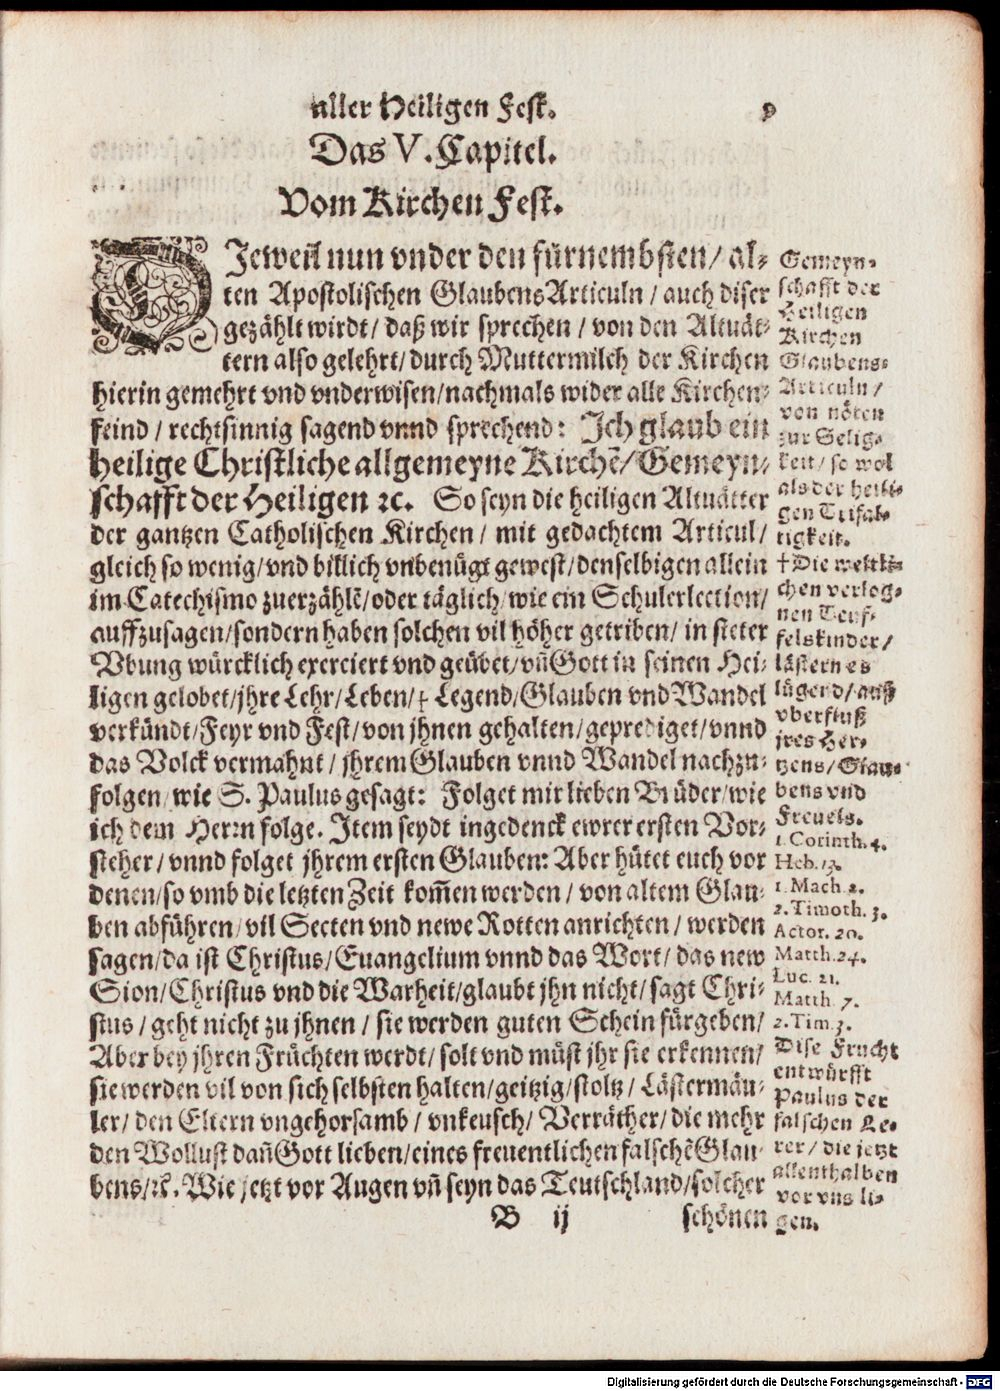 aller Heiligen Fest. 9
Das V. Capitel.
Vom Kirchen Fest.
DJeweil nun vnder den fürnembsten/ al-
ten Apostolischen GlaubensArticuln / auch diser
gezählt wirdt/ daß wir sprechen / von den Altuät-
tern also gelehrt/ durch Muttermilch der Kirchen
hierin gemehrt vnd vnderwisen/nachmals wider alle Kirchen-
feind / rechtsinnig sagend vnnd sprechend: Jch glaub ein
heilige Christliche allgemeyne Kirchē/Gemeyn-
schafft der Heiligen ꝛc. So seyn die heiligen Altuätter
der gantzen Catholischen Kirchen / mit gedachtem Articul/
gleich so wenig/vnd billich vnbenügt gewest/denselbigen allein
im Catechismo zuerzählē/oder täglich/wie ein Schulerlection/
auffzusagen/sondern haben solchen vil höher getriben/ in steter
Vbung würcklich exerciert vnd geübet/vn̄ Gott in seinen Hei-
ligen gelobet/jhre Lehr/Leben/† Legend/Glauben vnd Wandel
verkündt/Feyr vnd Fest/von jhnen gehalten/geprediget/vnnd
das Volck vermahnt / jhrem Glauben vnnd Wandel nachzu-
folgen/wie S. Paulus gesagt: Folget mir lieben Brüder/wie
ich dem Herrn folge. Jtem seydt ingedenck ewrer ersten Vor-
steher / vnnd folget jhrem ersten Glauben: Aber hütet euch vor
denen/so vmb die letzten Zeit kom̄en werden / von altem Glau-
ben abführen/vil Secten vnd newe Rotten anrichten / werden
sagen/da ist Christus/Euangelium vnnd das Wort/ das new
Sion/Christus vnd die Warheit/glaubt jhn nicht/ sagt Chri-
stus / geht nicht zu jhnen / sie werden guten Schein fürgeben/
Aber bey jhren Früchten werdt/ solt vnd müst jhr sie erkennen/
sie werden vil von sich selbsten halten/geitzig/stoltz / Lästermäu-
ler/ den Eltern vngehorsamb / vnkeusch/ Verräther/ die mehr
den Wollust dan̄ Gott lieben/eines freuentlichen falschē Glau-
bens/ꝛc. Wie jetzt vor Augen vn̄ seyn das Teutschland/solcher
B ij schönen
Gemeyn-
schafft der
Heiligen
Kirchen
Glaubens-
Articuln /
von nöten
zur Selig-
keit/ so wol
als der heili-
gen Trifal-
tigkeit.
† Die weltli-
chen verlog-
nen Teuf-
felskinder/
lästern es
lügend/auß
vberfluß
jres Her-
tzens/Glau-
bens vnd
Freuels.
1. Corinth. 4.
Heb. 13.
1. Mach. 2.
2. Timoth. 3.
Actor. 20.
Matth. 24.
Luc. 21.
Matth. 7.
2. Tim. 3.
Dise Frucht
entwürfft
Paulus der
falschen Le-
rer / die jetzt
allenthalben
vor vns li-
gen.
Digitalisierung gefördert durch die Deutsche Forschungsgemeinschaft - DFG